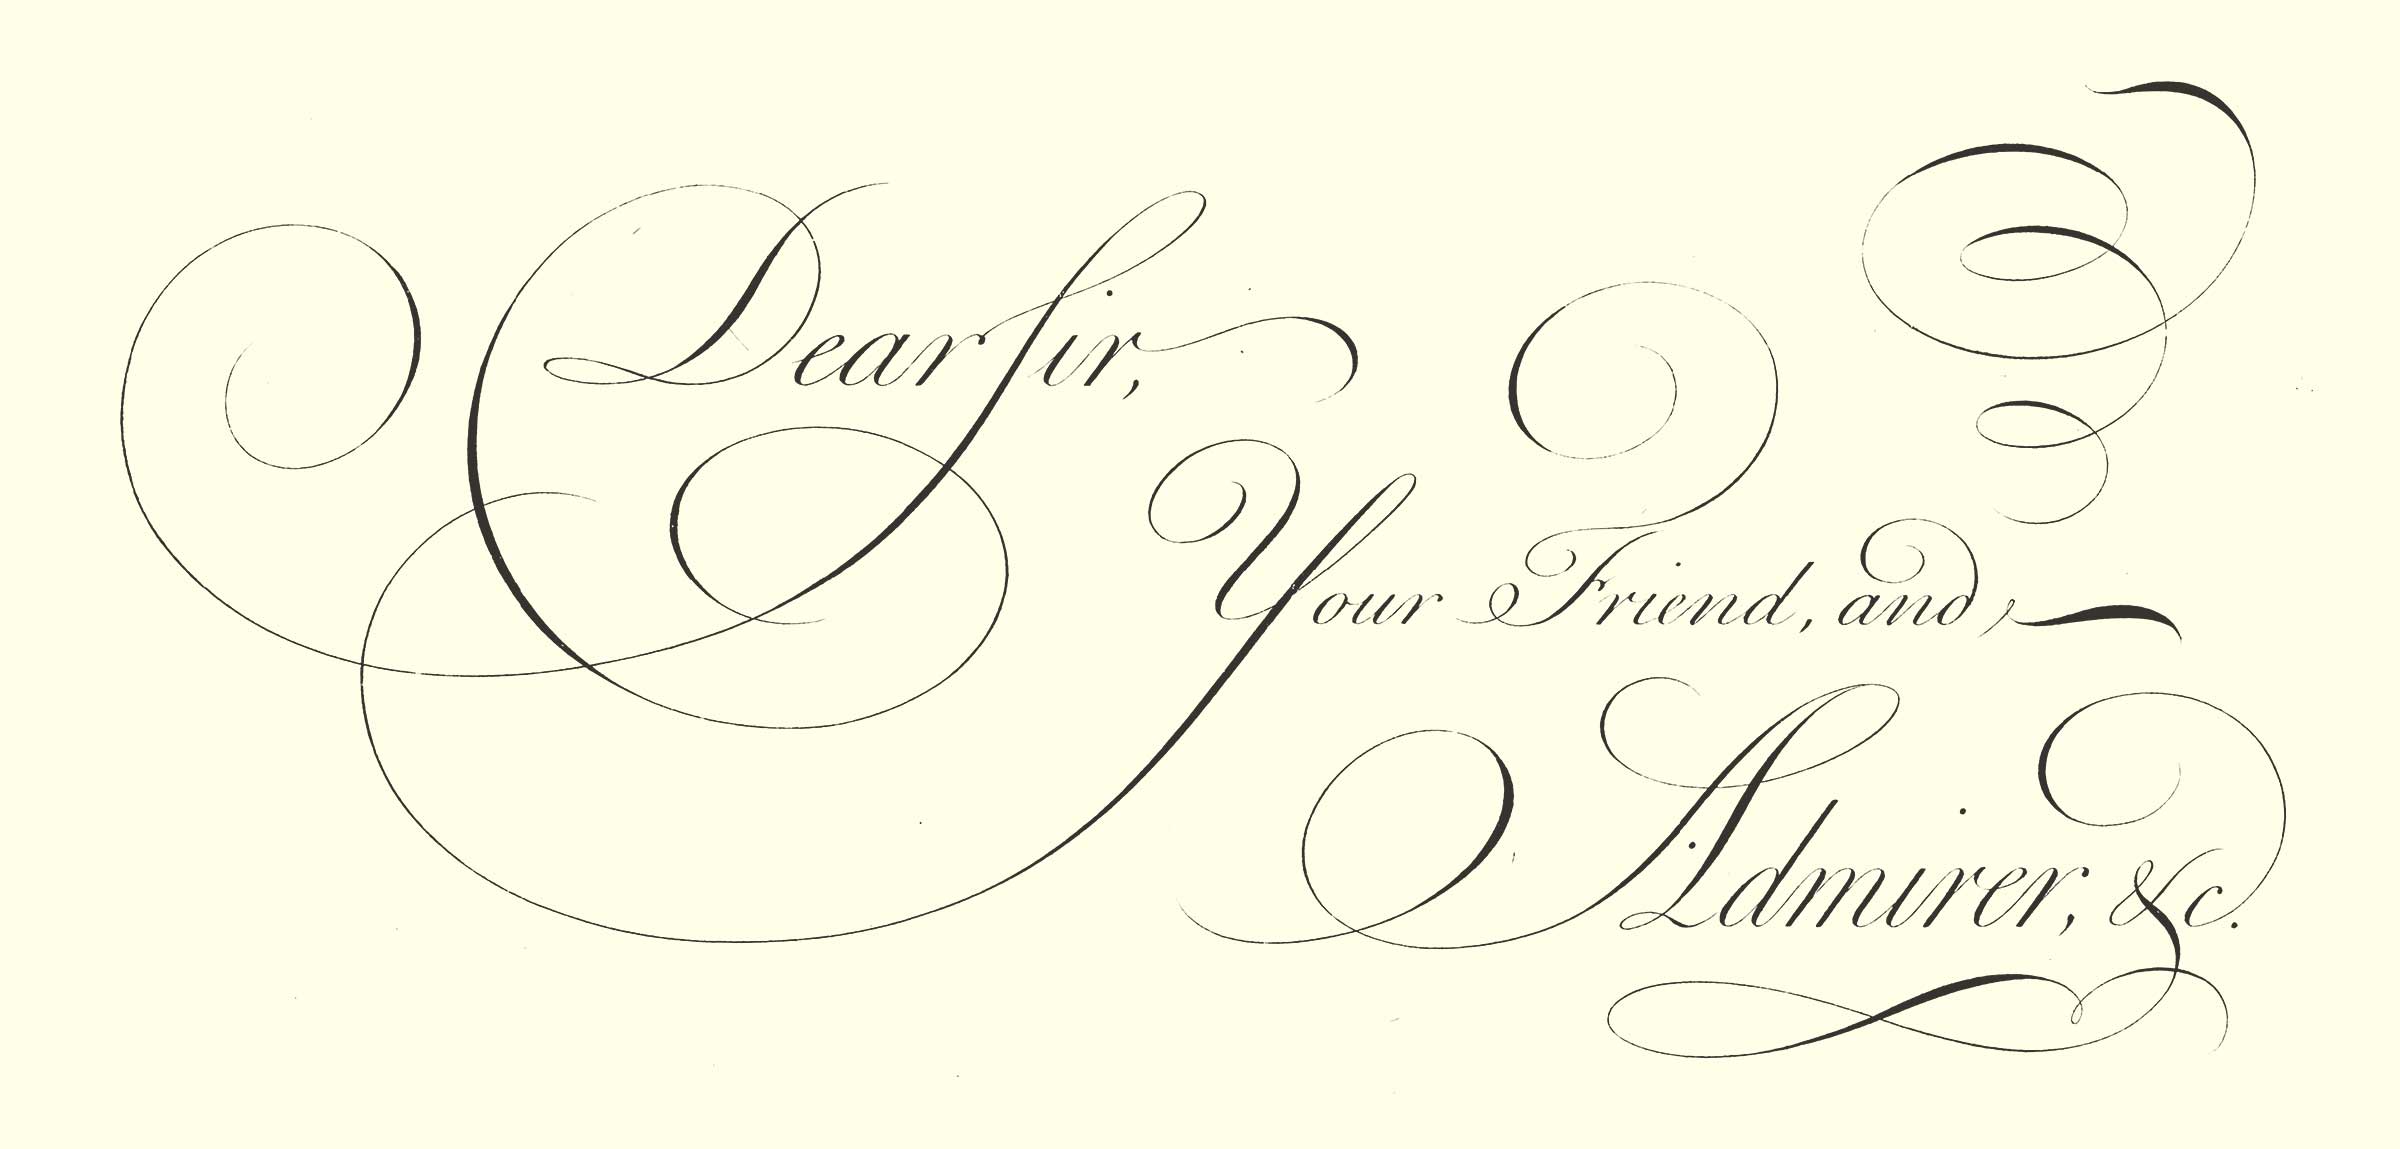 Dear Sir,
Your Friend, and,
Admirer, &c.